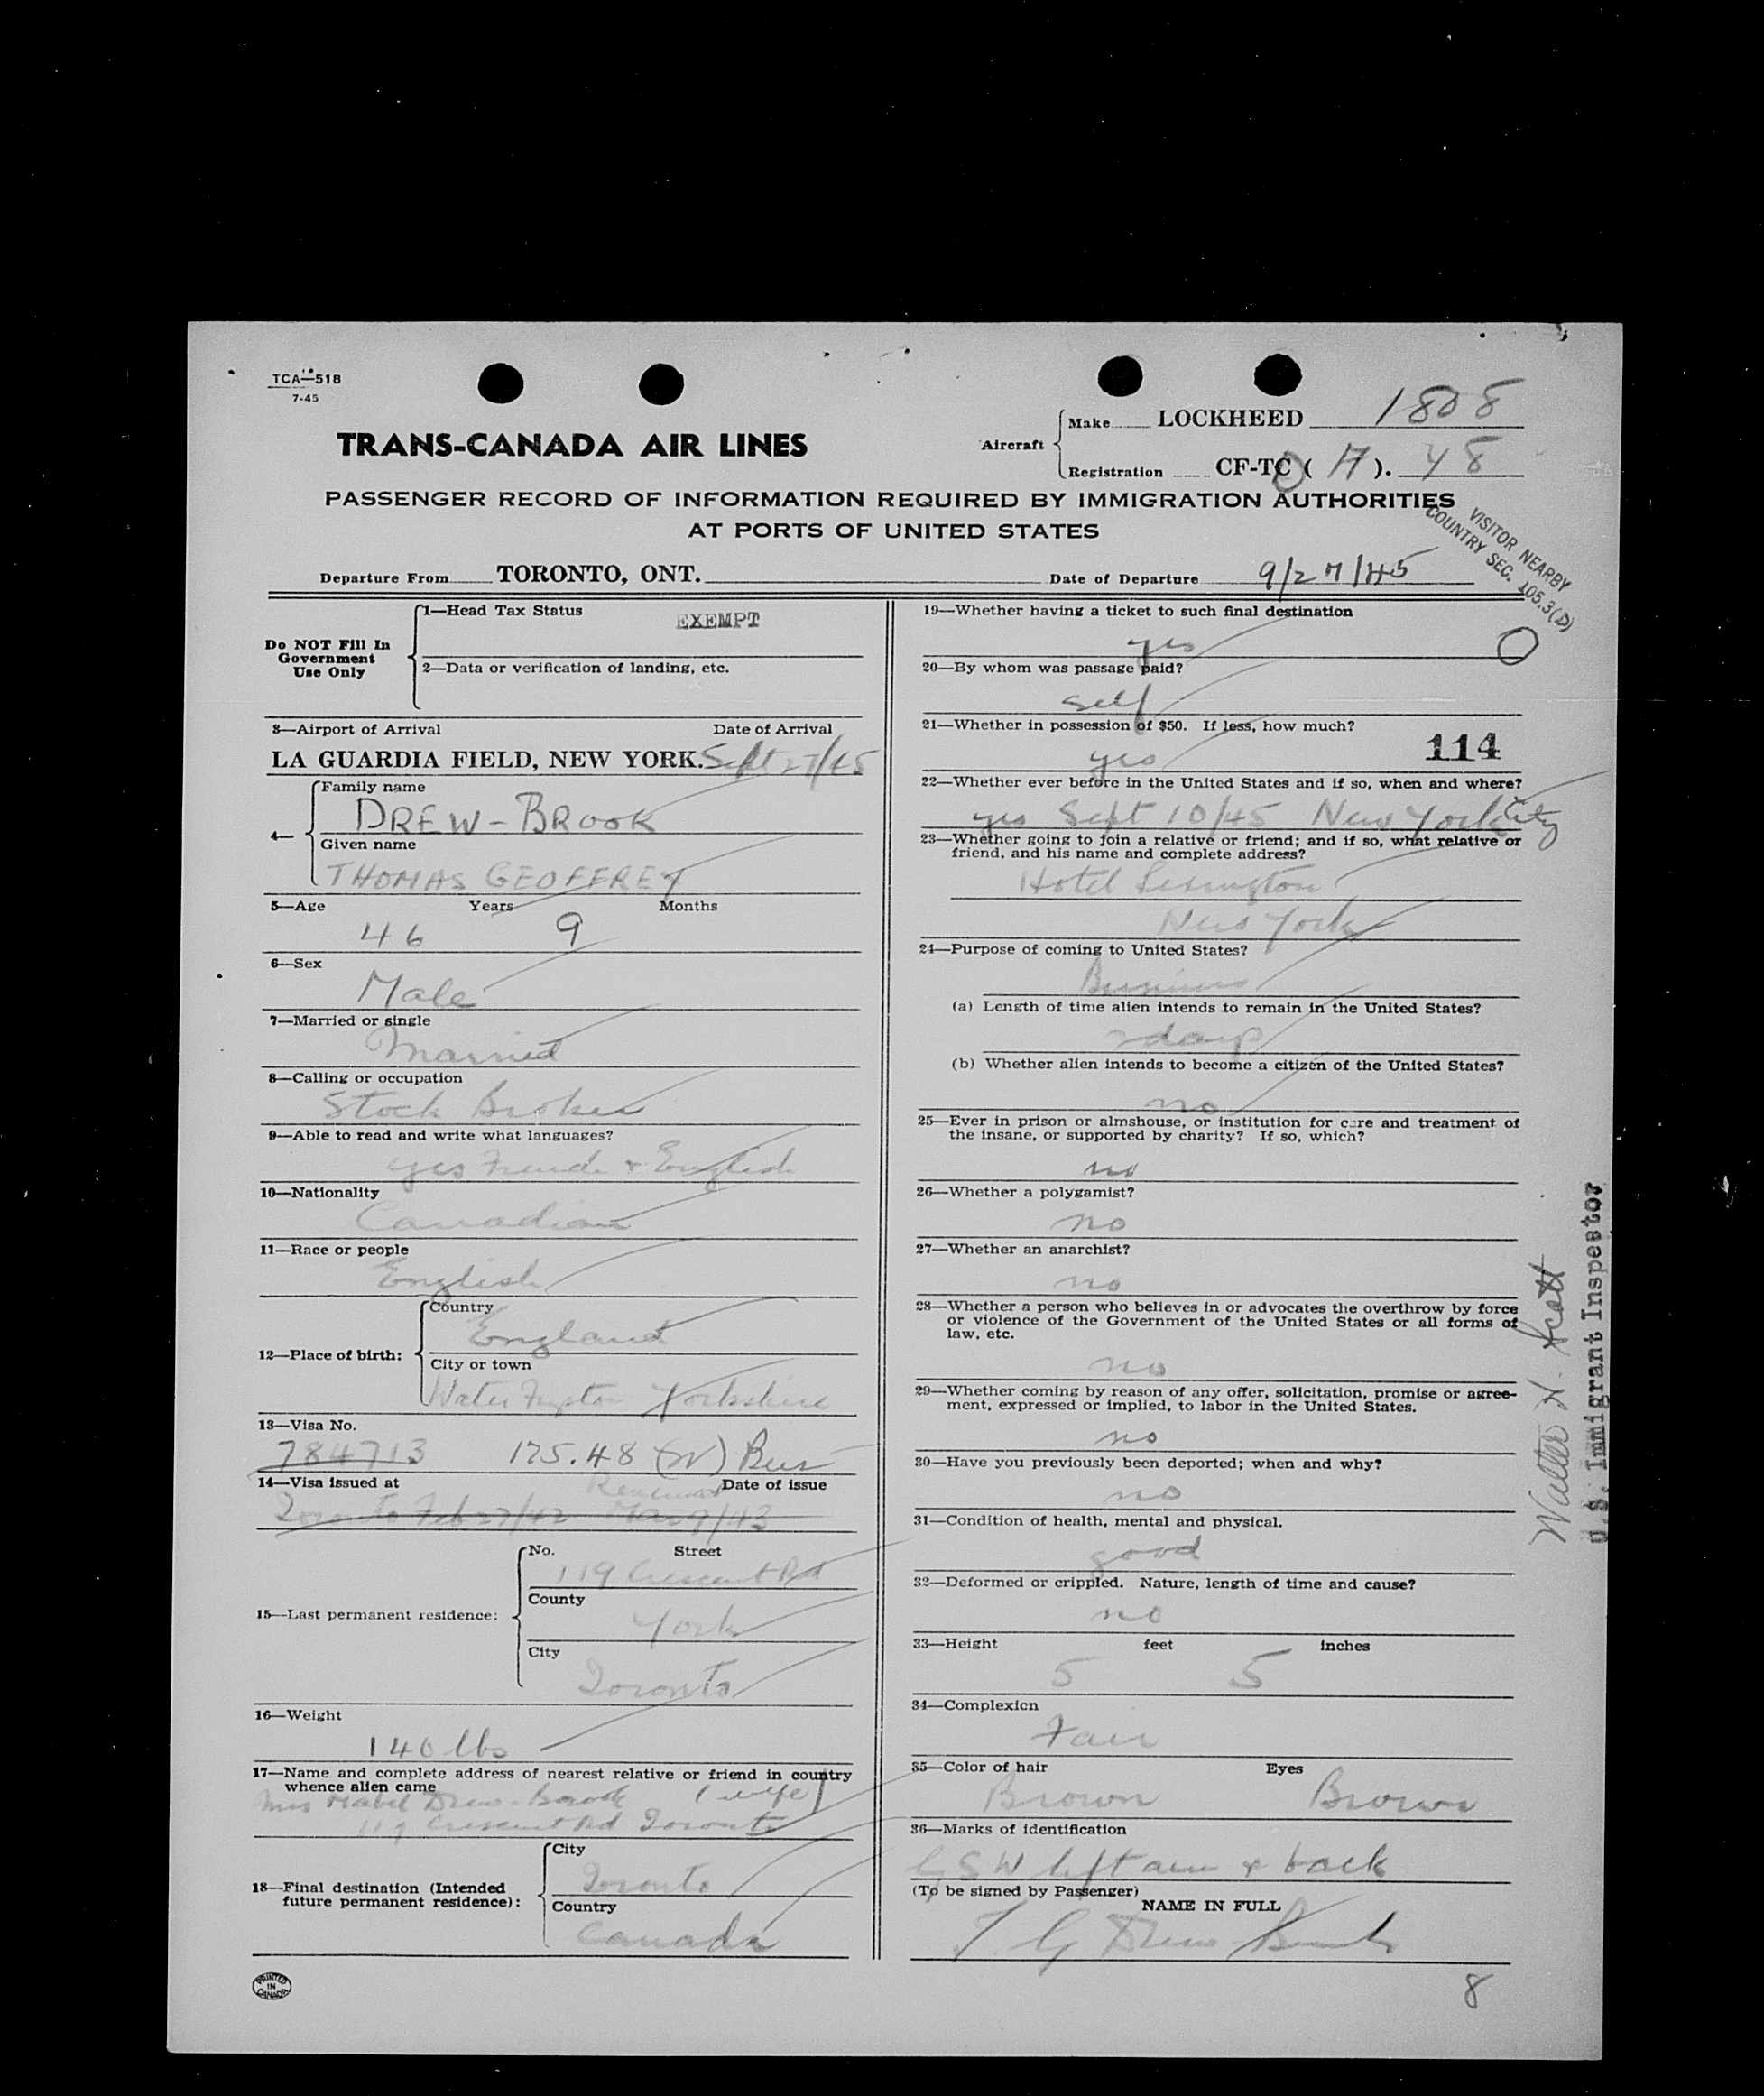 TCA—518
7-45
TRANS-CANADA AIR LINES
Aircraft
Make LOCKHEED 1808
Registration CF-TC ( A ). 48
PASSENGER RECORD OF INFORMATION REQUIRED BY IMMIGRATION AUTHORITIES
AT PORTS OF UNITED STATES
VISITOR NEARBY
COUNTRY SEC. 105.3(D)
Departure From TORONTO, ONT. Date of Departure 9/27/45
Do NOT Fill In
Government
Use Only
1—Head Tax Status EXEMPT
2—Data or verification of landing, etc.
3—Airport of Arrival Date of Arrival
LA GUARDIA FIELD, NEW YORK. Sept 27/45
4—
Family name
DREW-BROOK
Given name
THOMAS GEOFFREY
5—Age Years Months
46 9
6—Sex
Male
7—Married or single
Married
8—Calling or occupation
Stock Broker
9—Able to read and write what languages?
yes French + English
10—Nationality
Canadian
11—Race or people
English
12—Place of birth:
Country
England
City or town
Yorkshire
13—Visa No.
784713 175.48 Bus
14—Visa issued at Date of issue
Toronto Feb 27/42 Mar 9/43
15—Last permanent residence:
No. Street
119 Crescent Rd
County
York
City
Toronto
16—Weight
140 lbs
17—Name and complete address of nearest relative or friend in country
whence alien came
Mrs Mabel Drew-Brook (wife)
119 Crescent Rd Toronto
18—Final destination (Intended
future permanent residence):
City
Toronto
Country
Canada
PRINTED
IN
CANADA
19—Whether having a ticket to such final destination
yes
20—By whom was passage paid?
self
21—Whether in possession of $50. If less, how much?
yes
114
22—Whether ever before in the United States and if so, when and where?
yes Sept 10/45 New York City
23—Whether going to join a relative or friend; and if so, what relative or
friend, and his name and complete address?
Hotel Lexington
New York
24—Purpose of coming to United States?
Business
(a) Length of time alien intends to remain in the United States?
2 days
(b) Whether alien intends to become a citizen of the United States?
no
25—Ever in prison or almshouse, or institution for care and treatment of
the insane, or supported by charity? If so, which?
no
26—Whether a polygamist?
no
27—Whether an anarchist?
no
28—Whether a person who believes in or advocates the overthrow by force
or violence of the Government of the United States or all forms of
law, etc.
no
29—Whether coming by reason of any offer, solicitation, promise or agree-
ment, expressed or implied, to labor in the United States.
no
30—Have you previously been deported; when and why?
no
31—Condition of health, mental and physical.
good
32—Deformed or crippled. Nature, length of time and cause?
no
33—Height feet inches
5 5
34—Complexion
Fair
35—Color of hair Eyes
Brown Brown
36—Marks of identification
GSW left arm + back
(To be signed by Passenger)
NAME IN FULL
T G Drew-Brook
8
Walter H. Scott
U.S. Immigrant Inspector